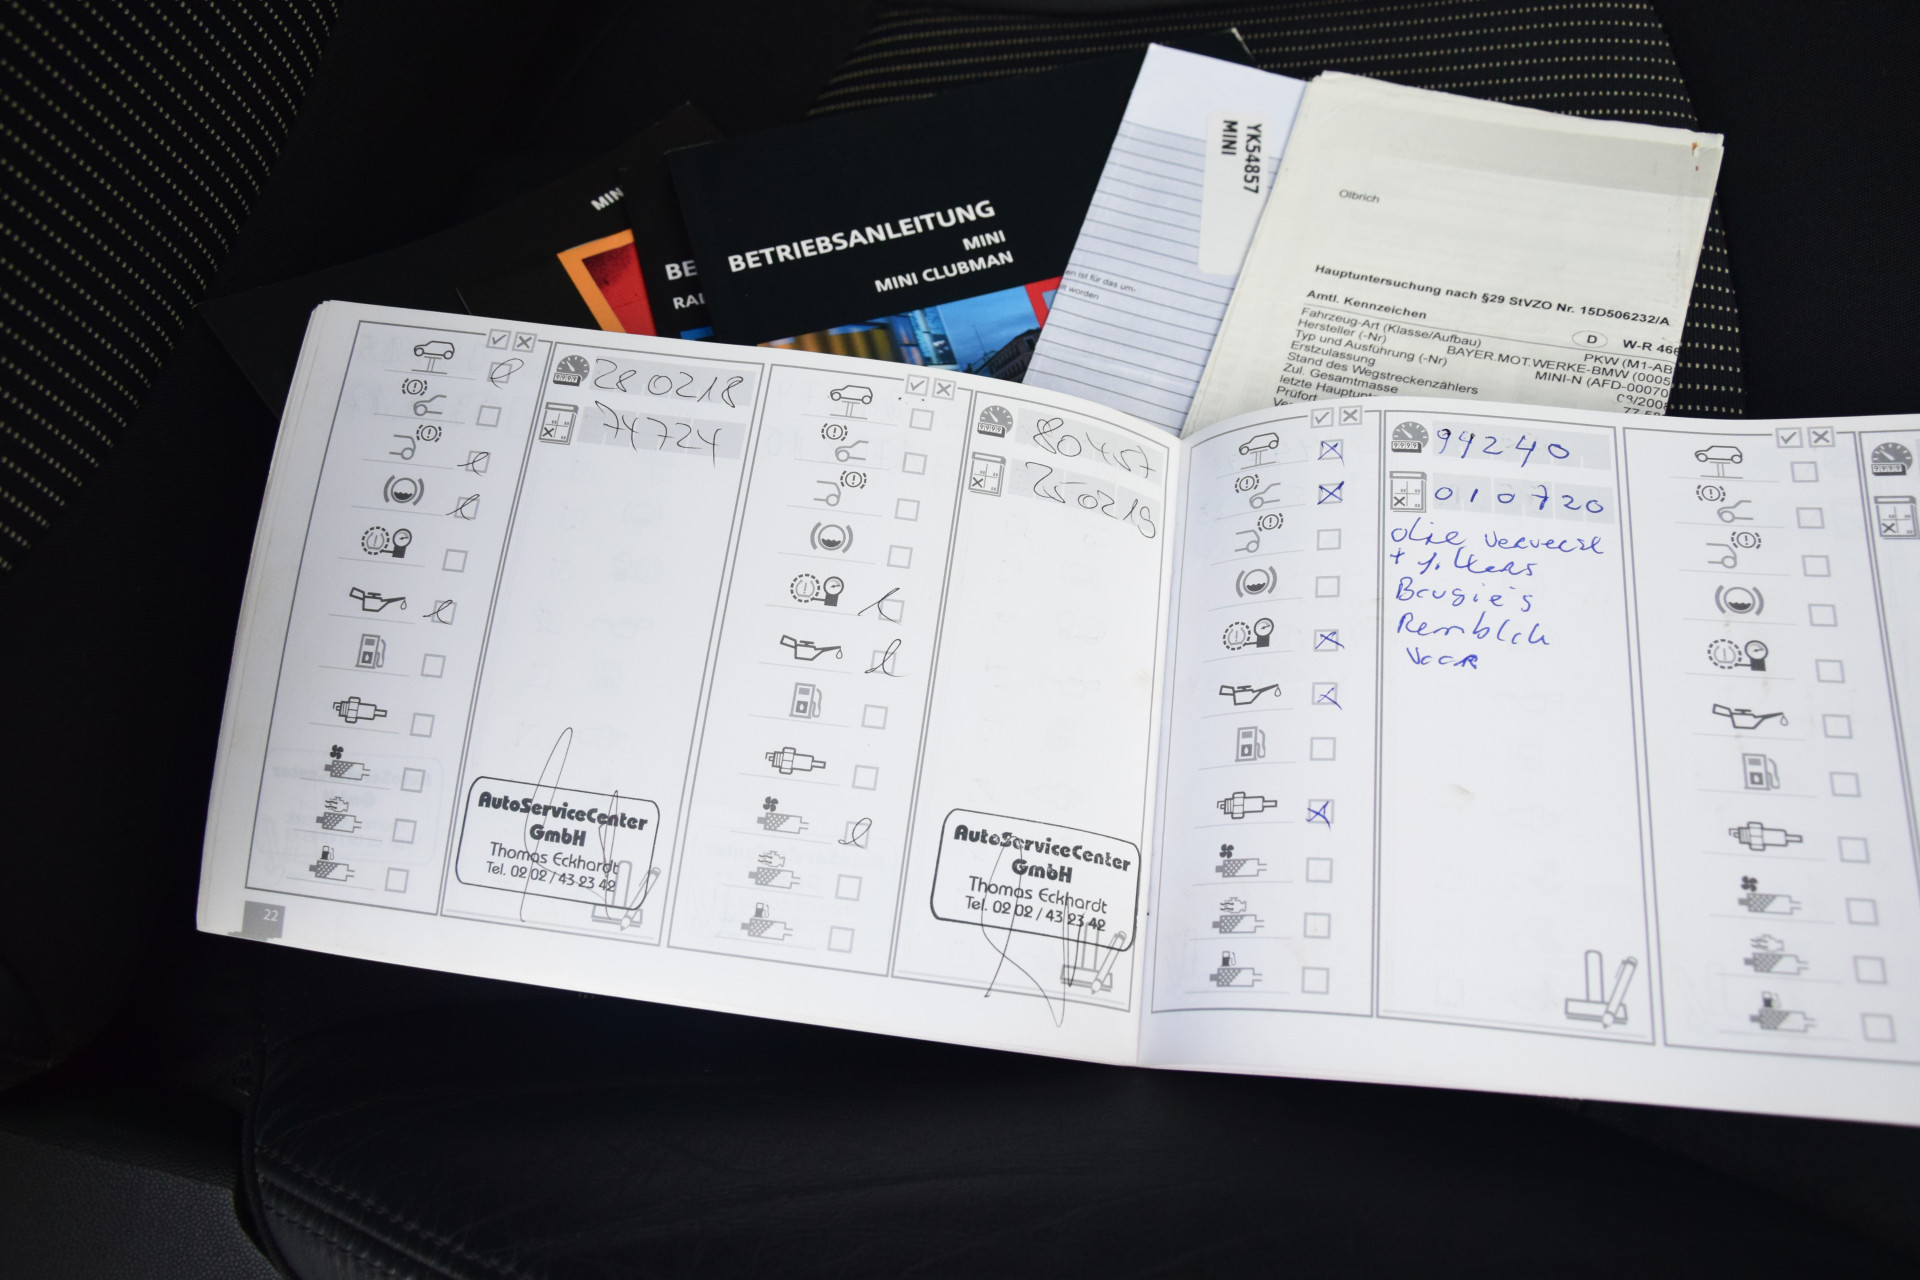 MIN
BE
RAD
BETRIEBSANLEITUNG
MINI
MINI CLUBMAN
YK54857
MINI
en ist für das um-
lt worden
Olbrich
Hauptuntersuchung nach §29 StVZO Nr. 15D506232/A
Amtl. Kennzeichen
D W-R 466
Fahrzeug-Art (Klasse/Aufbau)
PKW (M1-AB
Hersteller (-Nr)
BAYER.MOT.WERKE-BMW (0005
Typ und Ausführung (-Nr)
MINI-N (AFD-00070
Erstzulassung
03/200
Stand des Wegstreckenzählers
Zul. Gesamtmasse
letzte Hauptunt
Prüfort
280218
74724
AutoServiceCenter
GmbH
Thomas Eckhardt
Tel. 02 02 / 43 23 42
22
80457
250219
AutoServiceCenter
GmbH
Thomas Eckhardt
Tel. 02 02 / 43 23 42
94240
010720
olie ververst
+ filters
Bougie's
Remblok
voor